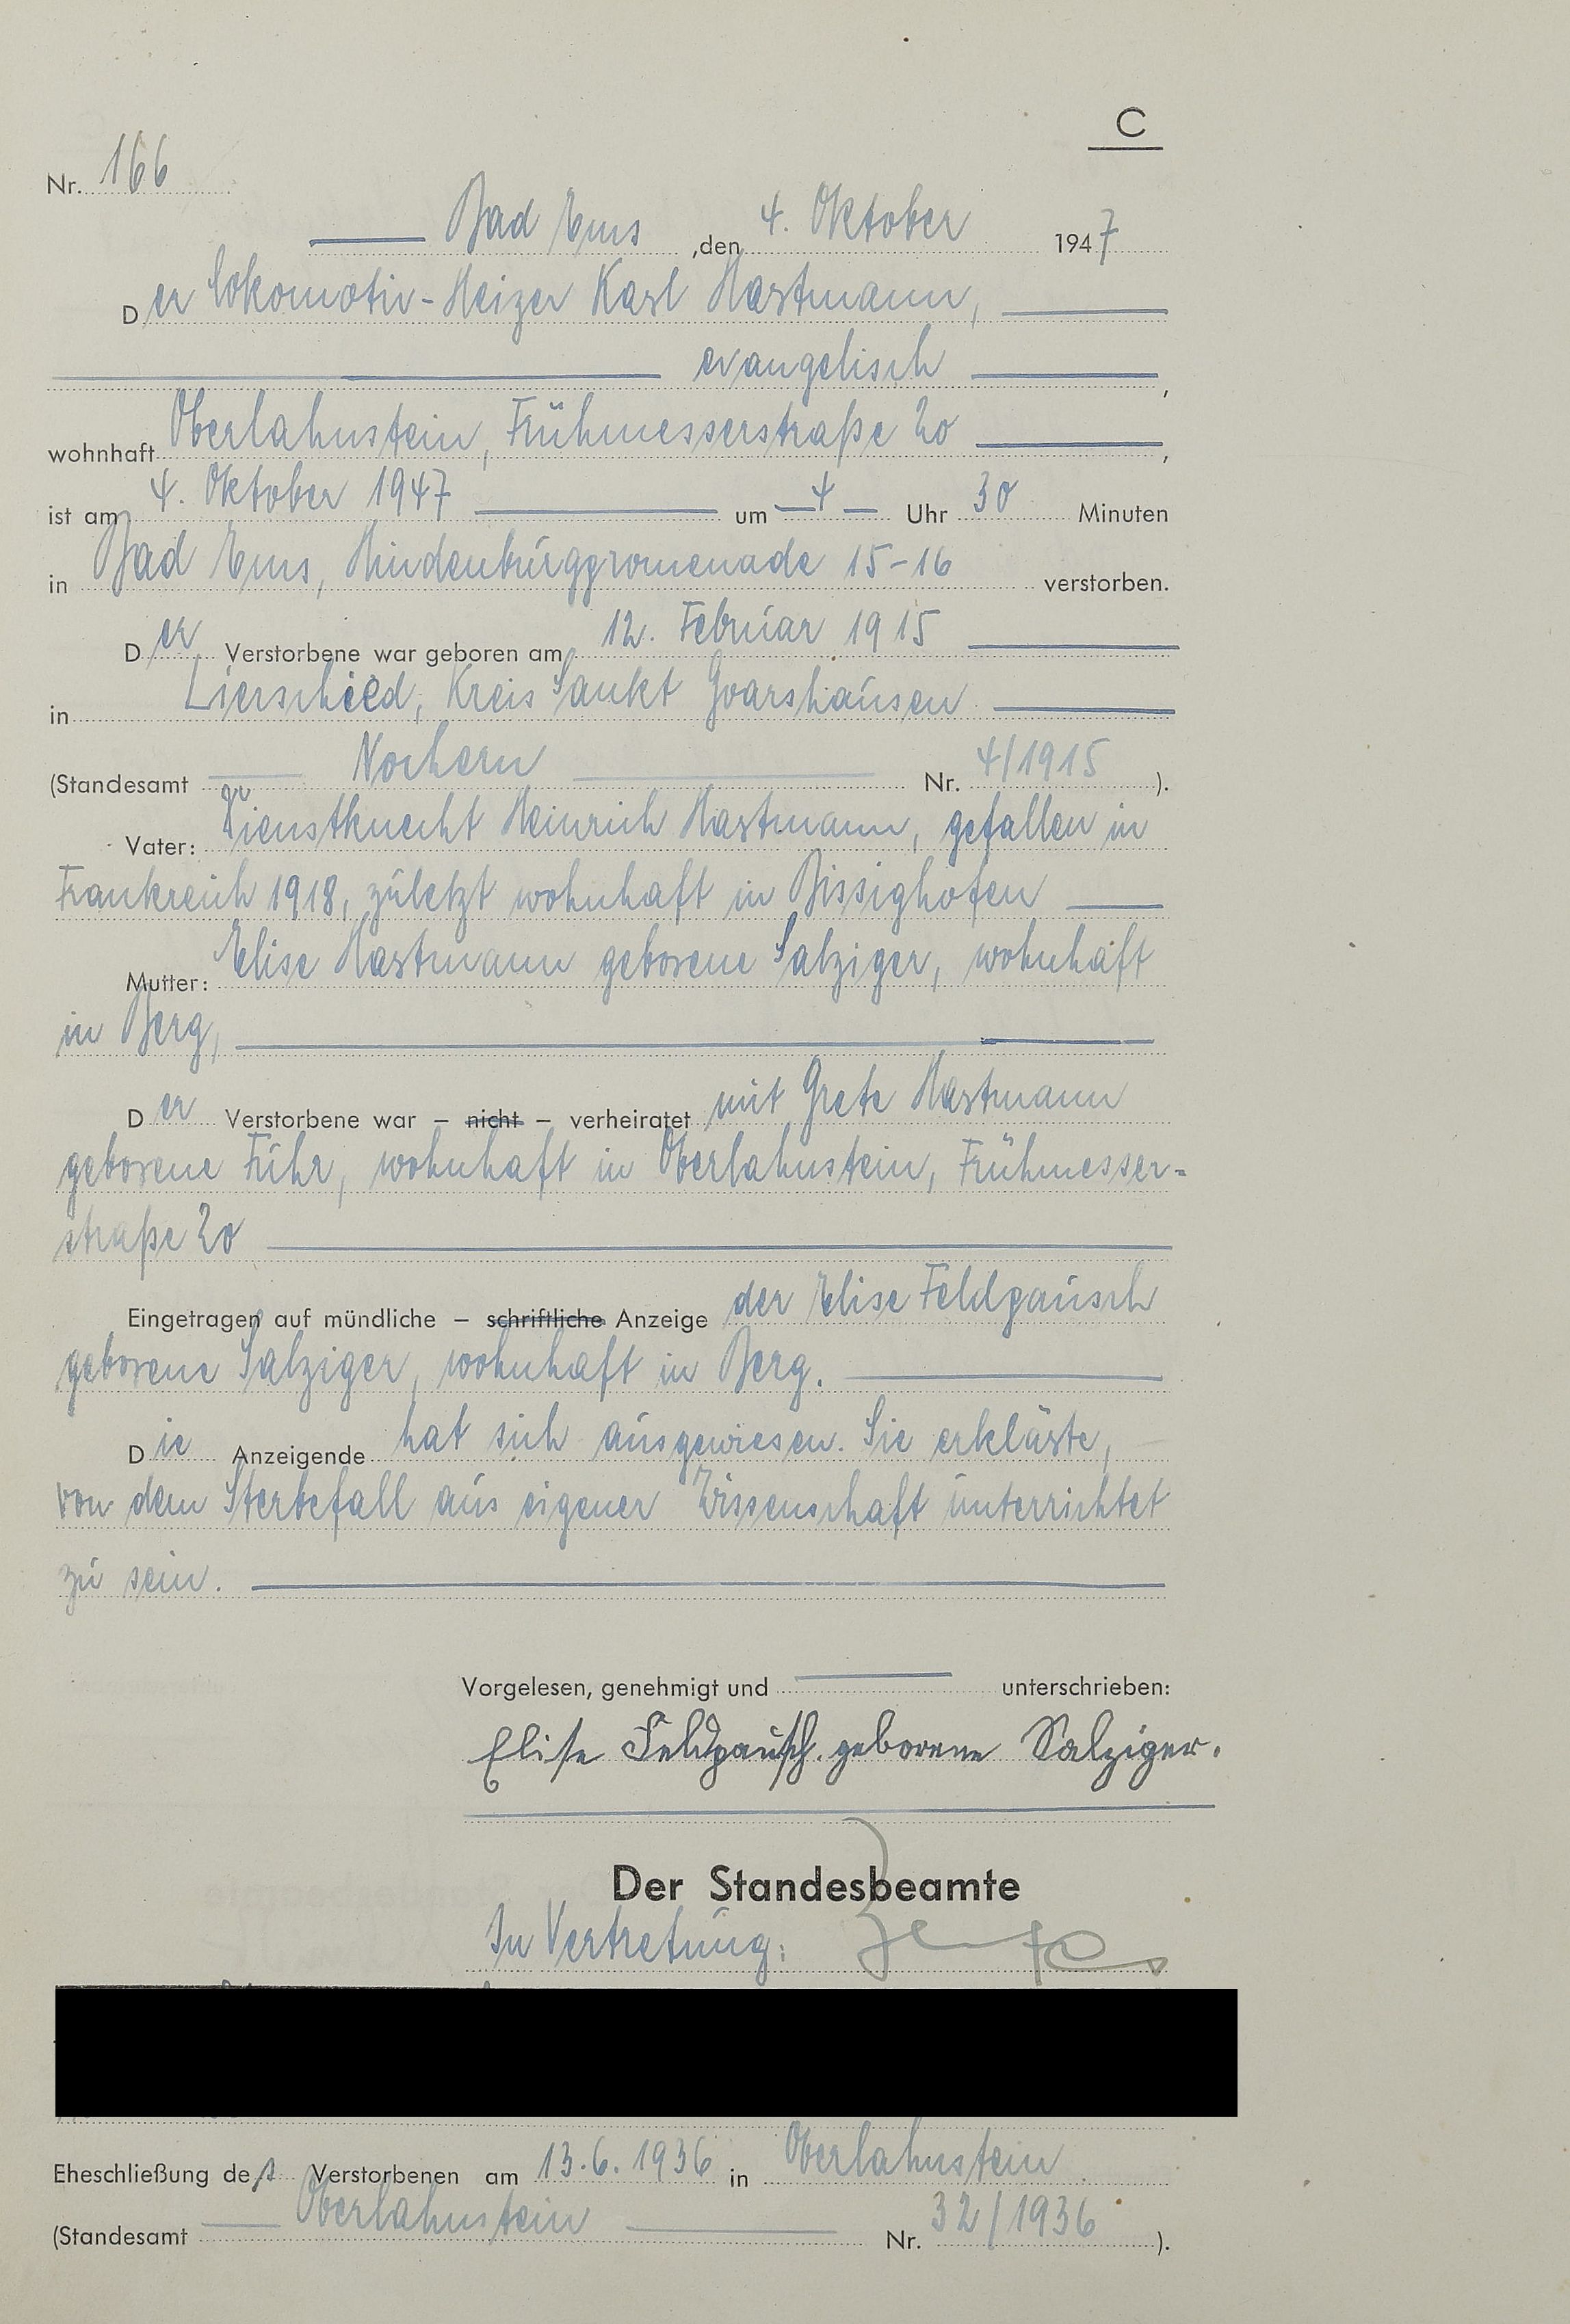 C
Nr. 166
Bad Ems, den 4. Oktober 1947
Der Lokomotiv-Heizer Karl Hartmann,
evangelisch,
wohnhaft Oberlahnstein, Frühmesserstraße 20,
ist am 4. Oktober 1947 um 4 Uhr 30 Minuten
in Bad Ems, Hindenburgpromenade 15-16 verstorben.
Der Verstorbene war geboren am 12. Februar 1915
in Lierschied, Kreis Sankt Goarshausen
(Standesamt Nochern Nr. 4/1915).
Vater: Dienstknecht Heinrich Hartmann, gefallen in
Frankreich 1918, zuletzt wohnhaft in Bissighofen
Mutter: Elise Hartmann geborene Salziger, wohnhaft
in Berg,
Der Verstorbene war – nicht – verheiratet mit Grete Hartmann
geborene Führ, wohnhaft in Oberlahnstein, Frühmesser-
straße 20
Eingetragen auf mündliche – schriftliche Anzeige der Elise Feldpausch
geborene Salziger, wohnhaft in Berg.
Die Anzeigende hat sich ausgewiesen. Sie erklärte,
von dem Sterbefall aus eigener Wissenschaft unterrichtet
zu sein.
Vorgelesen, genehmigt und unterschrieben:
Elise Feldpausch. geborene Salziger.
Der Standesbeamte
In Vertretung:
Eheschließung des Verstorbenen am 13.6.1936 in Oberlahnstein
(Standesamt Oberlahnstein Nr. 32/1936).